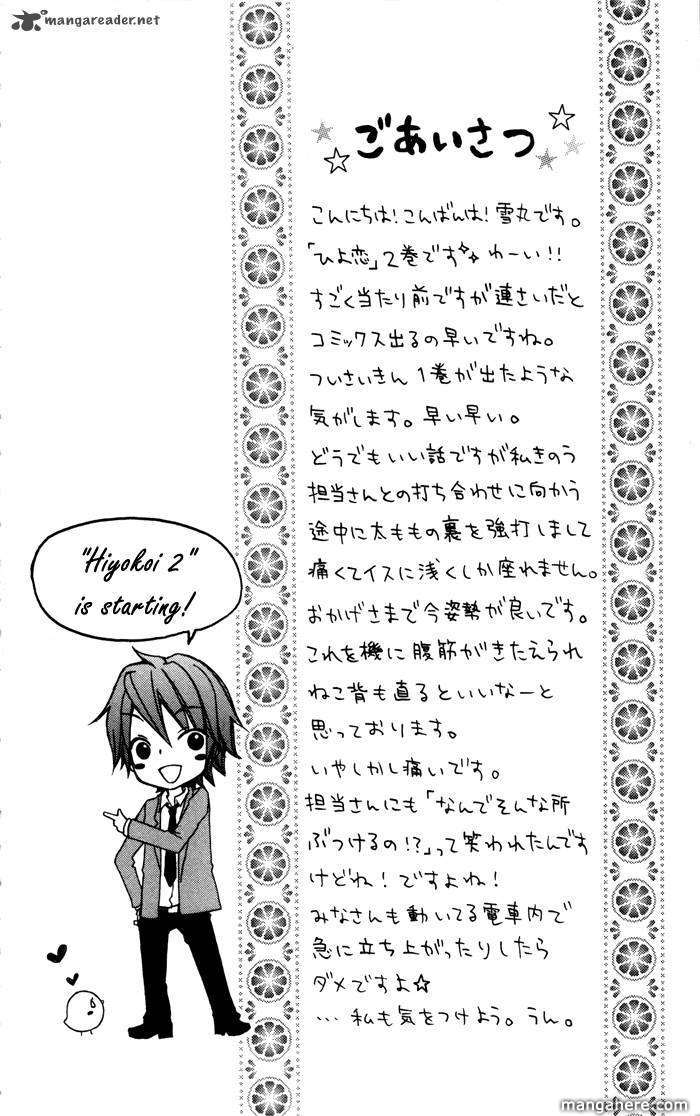 mangareader.net
ごあいさつ
こんにちは!こんばんは!雪丸です。
「ひよ恋」2巻です わーい!!
すごく当たり前ですが連さいだと
コミックス出るの早いですね。
ついさいきん1巻が出たような
気がします。早い早い。
どうでもいい話ですが私きのう
担当さんとの打ち合わせに向かう
途中に太ももの裏を強打しまして
痛くてイスに浅くしか座れません。
おかげさまで今姿勢が良いです。
これを機に腹筋がきたえられ
ねこ背も直るといいなーと
思っております。
いやしかし痛いです。
担当さんにも「なんでそんな所
ぶつけるの!?」って笑われたんです
けどね!ですよね!
みなさんも動いてる電車内で
急に立ち上がったりしたら
ダメですよ☆
…私も気をつけよう。うん。
"Hiyokoi 2"
is starting!
mangahere.com